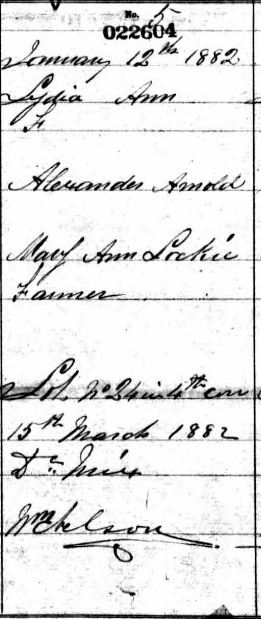 No. 5
022604
January 12th 1882
Lydia Ann
F
Alexander Arnold
Mary Ann Lockie
Farmer
Lot No 2 in 4th con
15th March 1882
Dr
Wm Nelson